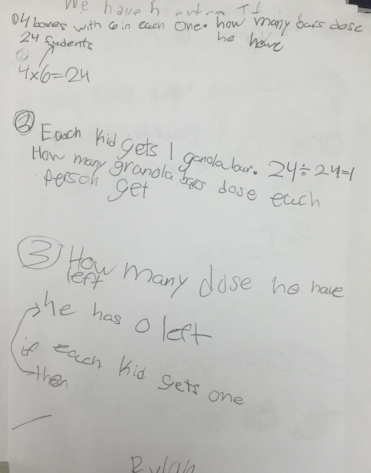 We have
① 4 boxes with 6 in each one. how many bars dose
he have
24 Sudents
4x6=24
② Each kid gets 1 ganola bar. 24÷24=1
How many granola bars dose each
person get
③ How many dose he have
left
he has 0 left
if each kid gets one
then
Rylan